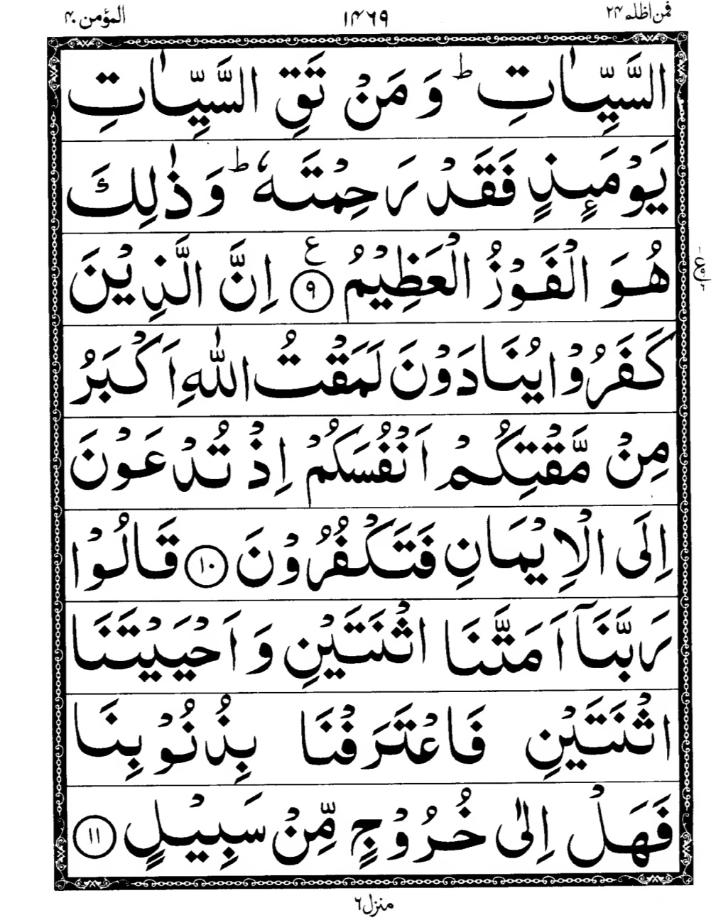 فمن اظلم ٢٤ ١٤٦٩ المؤمن ٤٠
السَّيِّاٰتِ ؕ وَ مَنْ تَقِ السَّيِّاٰتِ
يَوْمَىِٕذٍ فَقَدْ رَحِمْتَهٗ ؕ وَ ذٰلِكَ
هُوَ الْفَوْزُ الْعَظِيْمُ ۹ ع اِنَّ الَّذِيْنَ
كَفَرُوْا يُنَادَوْنَ لَمَقْتُ اللّٰهِ اَكْبَرُ
مِنْ مَّقْتِكُمْ اَنْفُسَكُمْ اِذْ تُدْعَوْنَ
اِلَى الْاِيْمَانِ فَتَكْفُرُوْنَ ۱۰ قَالُوْا
رَبَّنَاۤ اَمَتَّنَا اثْنَتَيْنِ وَ اَحْيَيْتَنَا
اثْنَتَيْنِ فَاعْتَرَفْنَا بِذُنُوْبِنَا
فَهَلْ اِلٰى خُرُوْجٍ مِّنْ سَبِيْلٍ ۱۱
منزل ٦